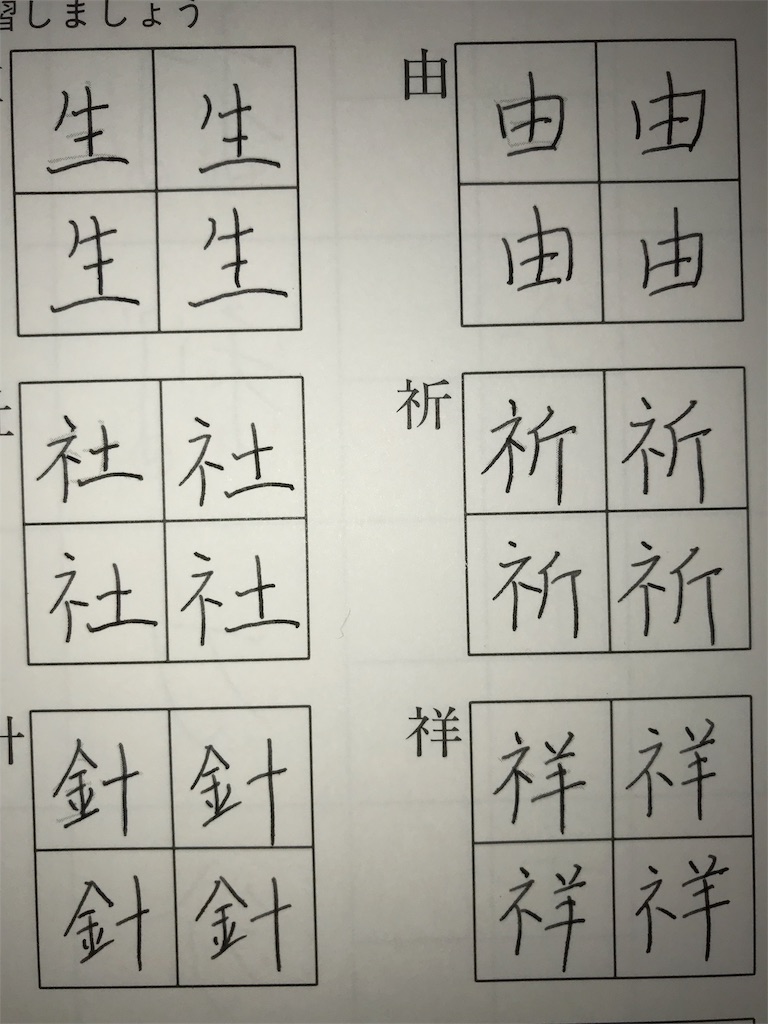 習しましょう
生 生 由 由 由
生 生 由 由
社 社 祈 祈 祈
社 社 祈 祈
針 針 祥 祥 祥
針 針 祥 祥